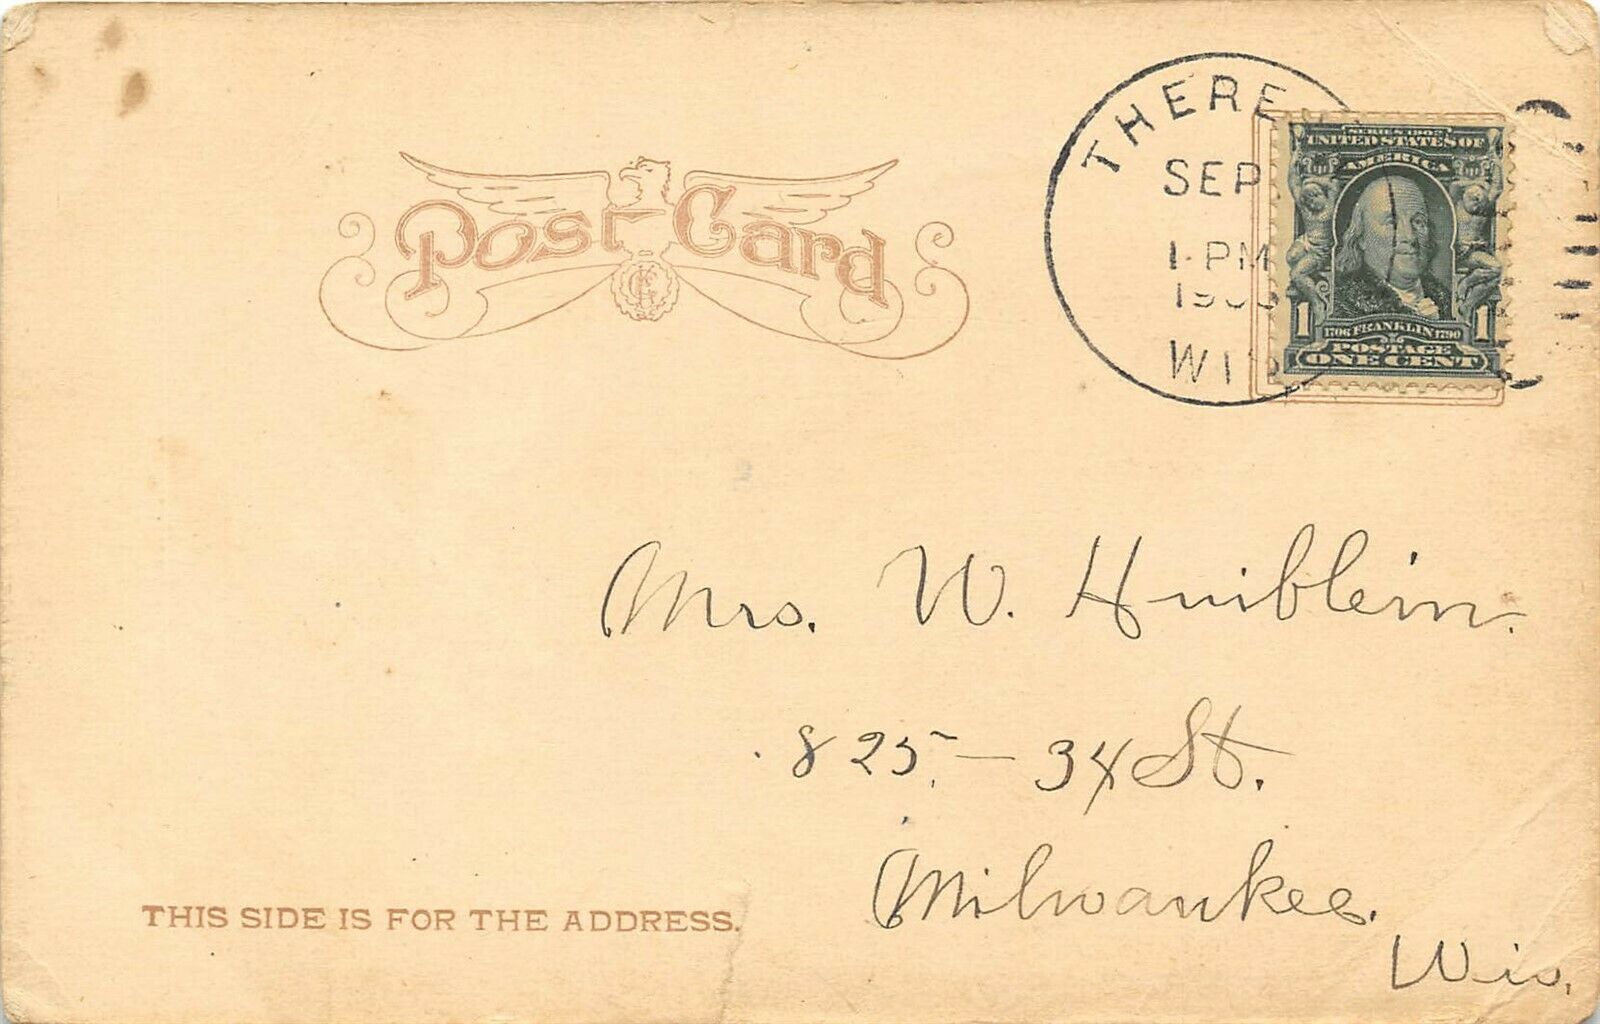 Post Card
SEP
1 PM
SERIES 1902
UNITED STATES OF
AMERICA
1 1
1706 FRANKLIN 1790
POSTAGE
ONE CENT
Mrs. W. Huiblein.
825 – 34 St.
Milwaukee.
Wis.
THIS SIDE IS FOR THE ADDRESS.